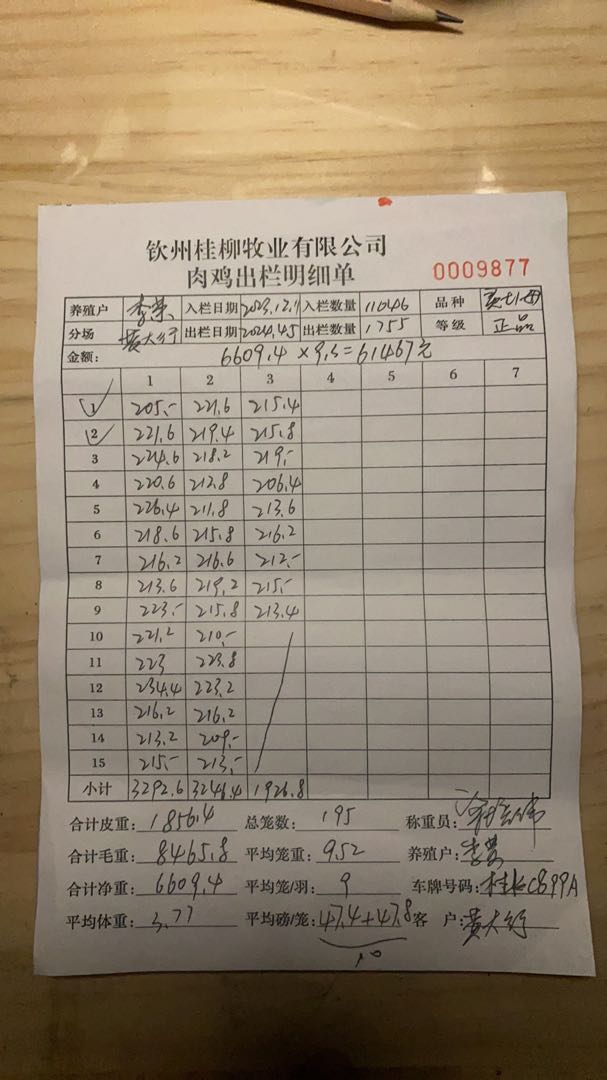 钦州桂柳牧业有限公司
肉鸡出栏明细单 0009877
养殖户 李荣 入栏日期 2023.12.11 入栏数量 11046 品种
分场 黄大行 出栏日期 2024.4.5 出栏数量 1755 等级 正品
金额: 6609.4 × 9.3 = 61467元
1 2 3 4 5 6 7
1 205.- 221.6 215.4
2 221.6 219.4 215.8
3 224.6 218.2 219.-
4 220.6 212.8 206.4
5 226.4 211.8 213.6
6 218.6 215.8 216.2
7 216.2 216.6 212.-
8 213.6 219.2 215.-
9 223.- 215.8 213.4
10 221.2 210.-
11 223 223.8
12 234.4 223.2
13 216.2 216.2
14 213.2 209.-
15 215.- 213.-
小计 3292.6 3246.4 1926.8
合计皮重: 1856.4 总笼数: 195 称重员:
合计毛重: 8465.8 平均笼重: 9.52 养殖户: 李荣
合计净重: 6609.4 平均笼/羽: 9 车牌号码: 桂KC899A
平均体重: 3.77 平均磅/笼: 47.4+47.8 客 户: 黄大行
10